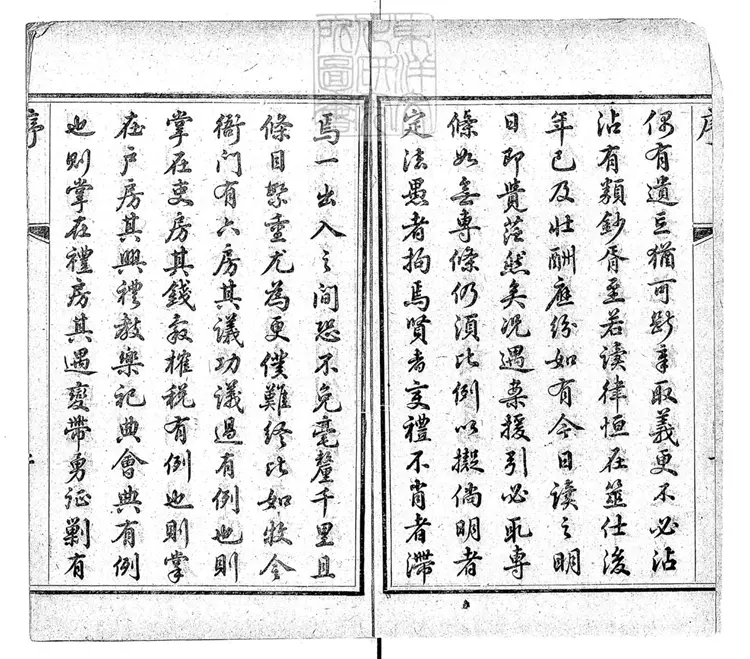 序
偶有遺忘猶可斷章取義更不必沾
沾有類鈔胥至若读律恒在筮仕後
年已及壯酬應紛如有今日读之明
日即貴茫然矣况遇案援引必取專
條如無專條仍須比例以擬倘明者
定法愚者拘焉賢者更禮不肖者滯
焉一出入之間恐不免毫釐千里且
條目繁重尤為更僕難终比如牧令
衙门有六房其議功議過有例也則
掌在吏房其錢穀榷税有例也則掌
在户房其興禮教樂祀典會典有例
也則掌在禮房其遇變帶勇征剿有
序
東洋文化研究所圖書